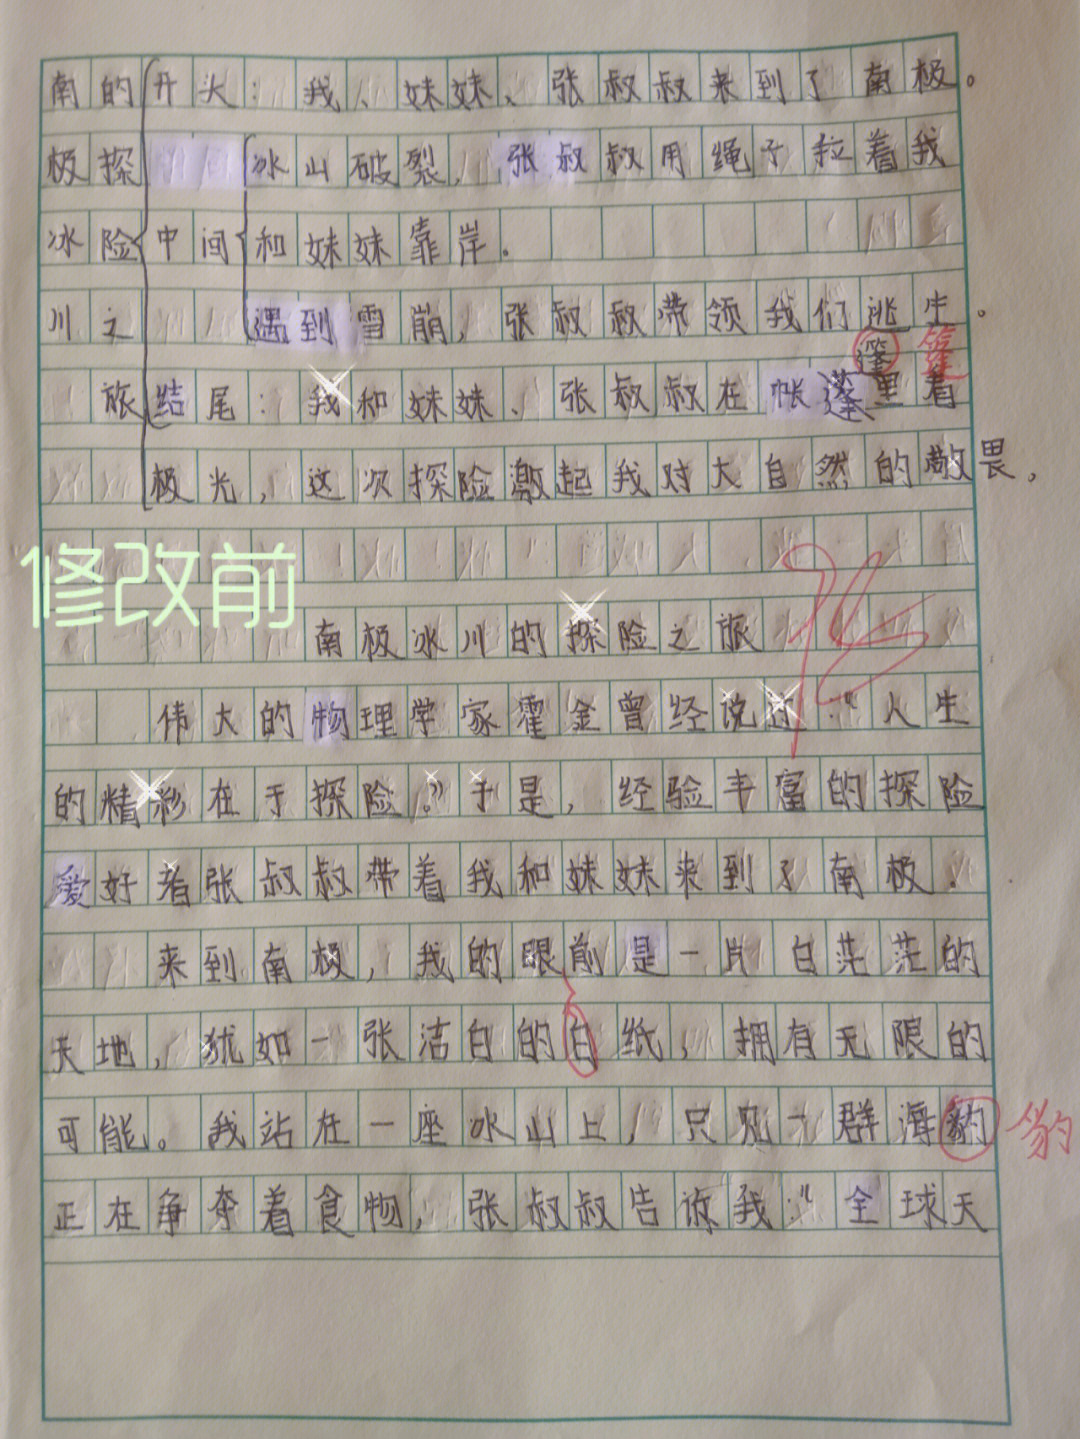 南的开头：我、妹妹、张叔叔来到了南极。
极探 冰山破裂，张叔叔用绳子拉着我
冰险中间和妹妹靠岸。
川之 遇到雪崩，张叔叔带领我们逃生。
篷 篷
旅结尾：我和妹妹、张叔叔在帐里看
极光，这次探险激起我对大自然的敬畏，
修改前
南极冰川的探险之旅
伟大的物理学家霍金曾经说过："人生
的精彩在于探险。"于是，经验丰富的探险
爱好者张叔叔带着我和妹妹来到了南极.
来到南极，我的眼前是一片白茫茫的
天地，犹如一张洁白的白纸，拥有无限的
可能。我站在一座冰山上，只见一群海豹 豹
正在争夺着食物，张叔叔告诉我："全球天